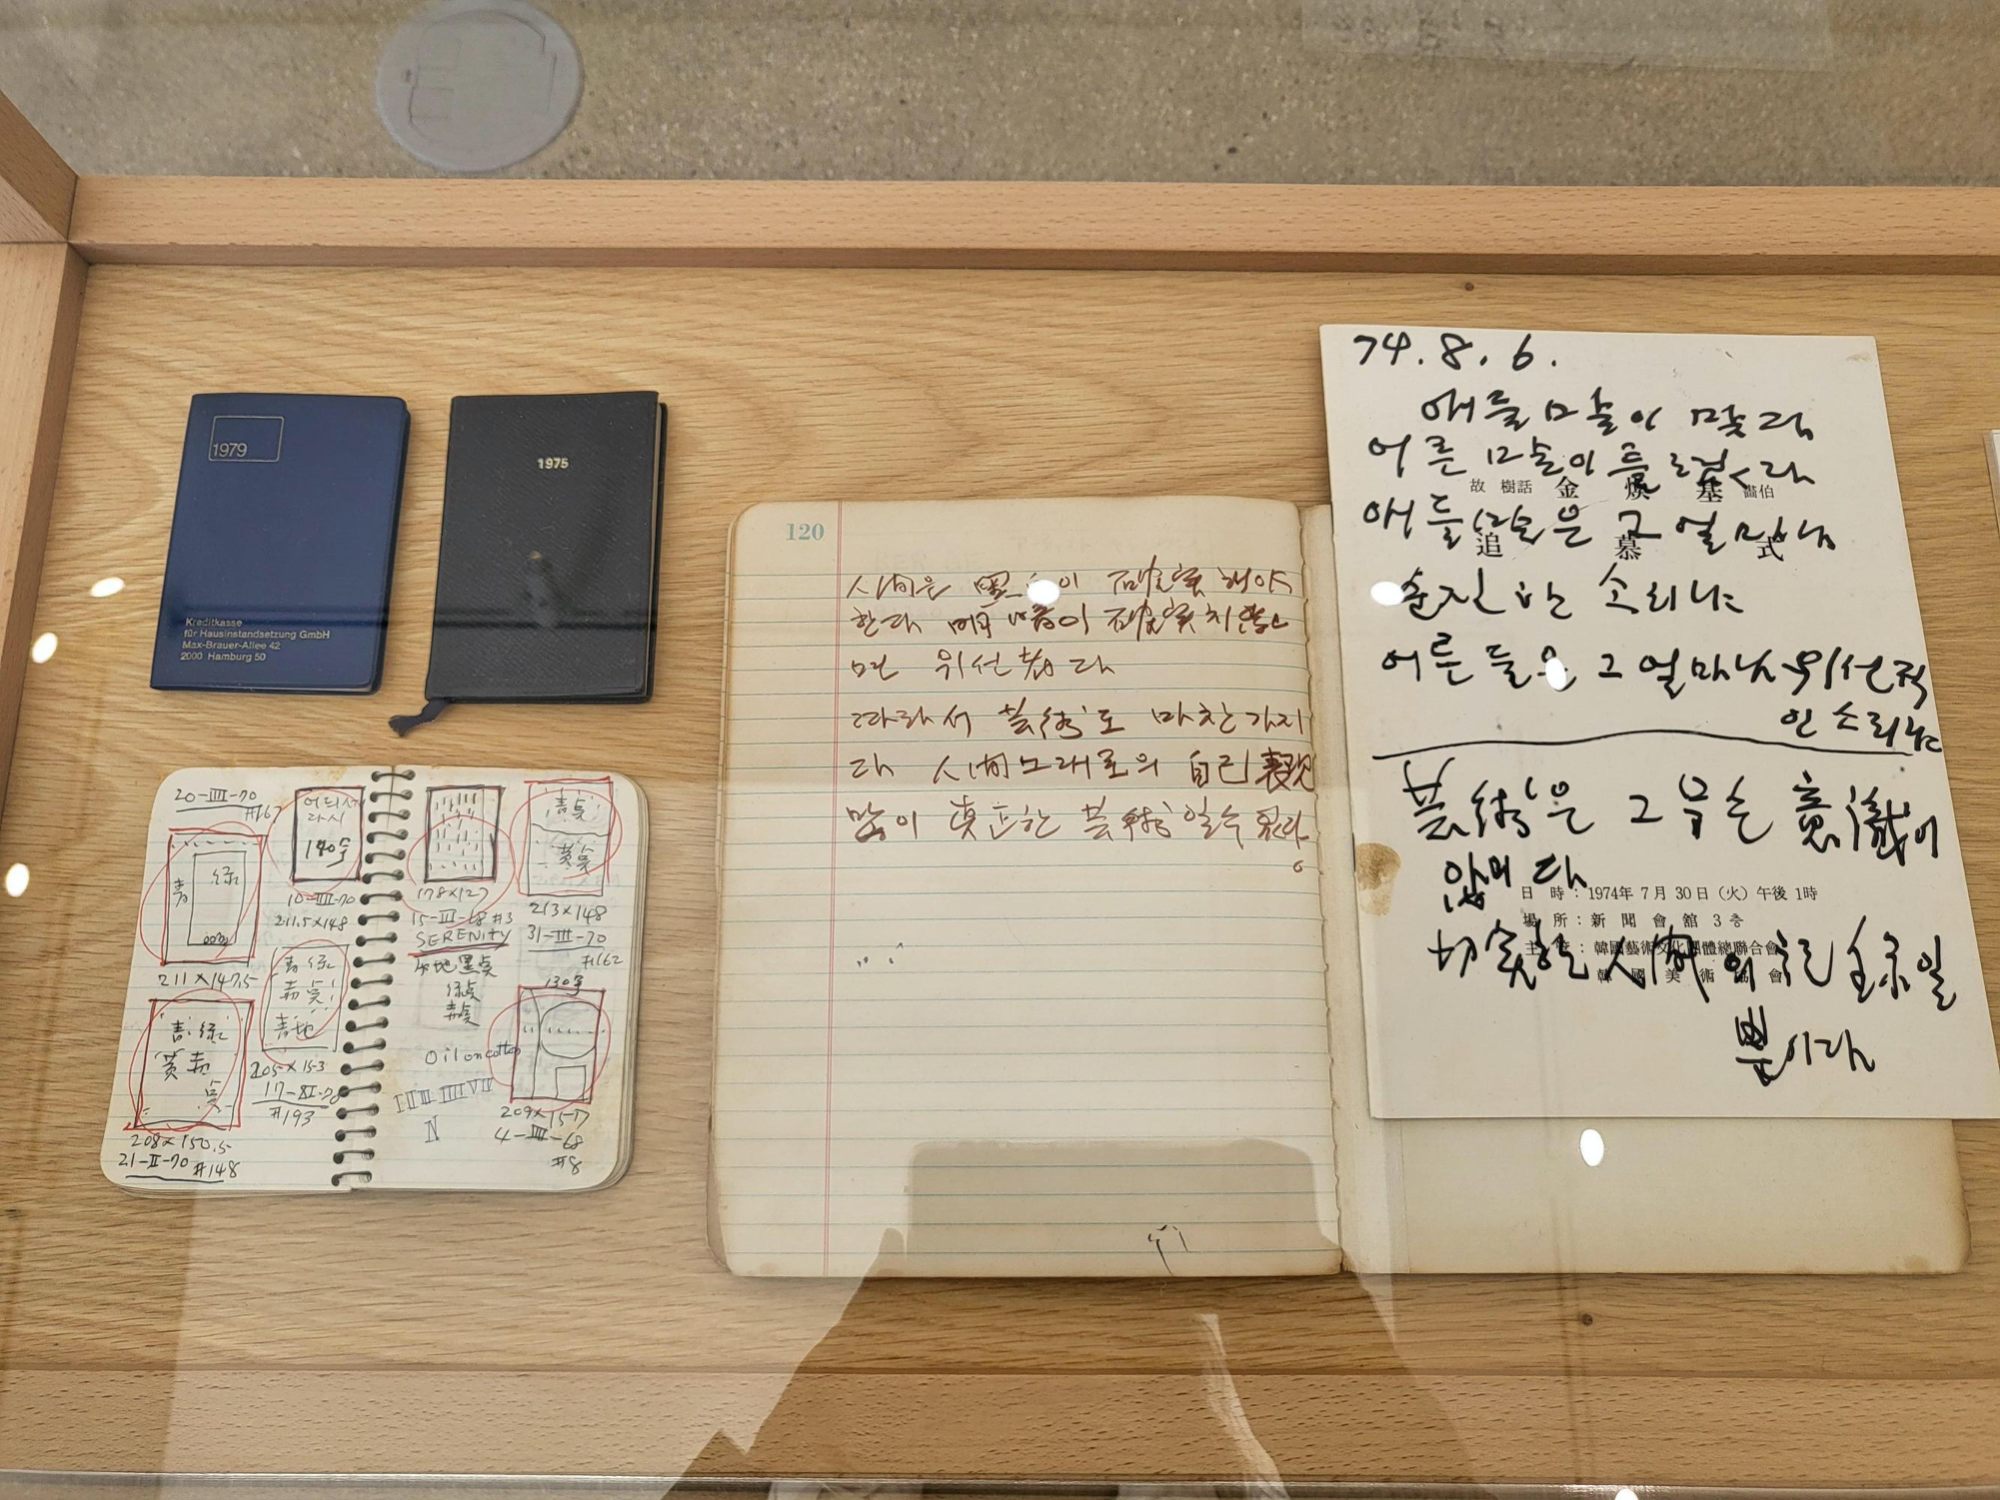 1979
Kreditkasse
für Hausinstandsetzung GmbH
Max-Brauer-Allee 42
2000 Hamburg 50
1975
20-III-70
#167
靑
綠
211×147.5
어디서
다시
140号
10-III-70
211.5×148
靑綠
靑点
靑地
205×153
#193
靑綠
黃赤
点
208×150.5
21-II-70 #148
178×127
15-III-68 #3
SERENITY
地黑点
綠点
靑点
Oil on cotton
靑点
黃点
213×148
31-III-70
#162
130号
209×157
4-III-68
#8
120
人間은 黑白이 確實해야
한다 明暗이 確實치 않으
면 위선者다
따라서 芸術도 마찬가지
다 人間 그대로의 自己表現
만이 眞正한 芸術일수 있다。
74.8.6.
애들 말솜이 맞다
어른 말솜이 틀렸다
애들 말은 그 얼마나
순진한 소리냐
어른들은 그 얼마나 위선적
인 소리냐
芸術은 그 무슨 意識이
않이다
切実한 人間의 記錄일
뿐이다
故 樹話 金 煥 基 畵伯
追 慕 式
日 時 : 1974年 7月 30日 (火) 午後 1時
場 所 : 新聞會館 3층
主 管 : 韓國藝術文化團體總聯合會
韓國美術協會